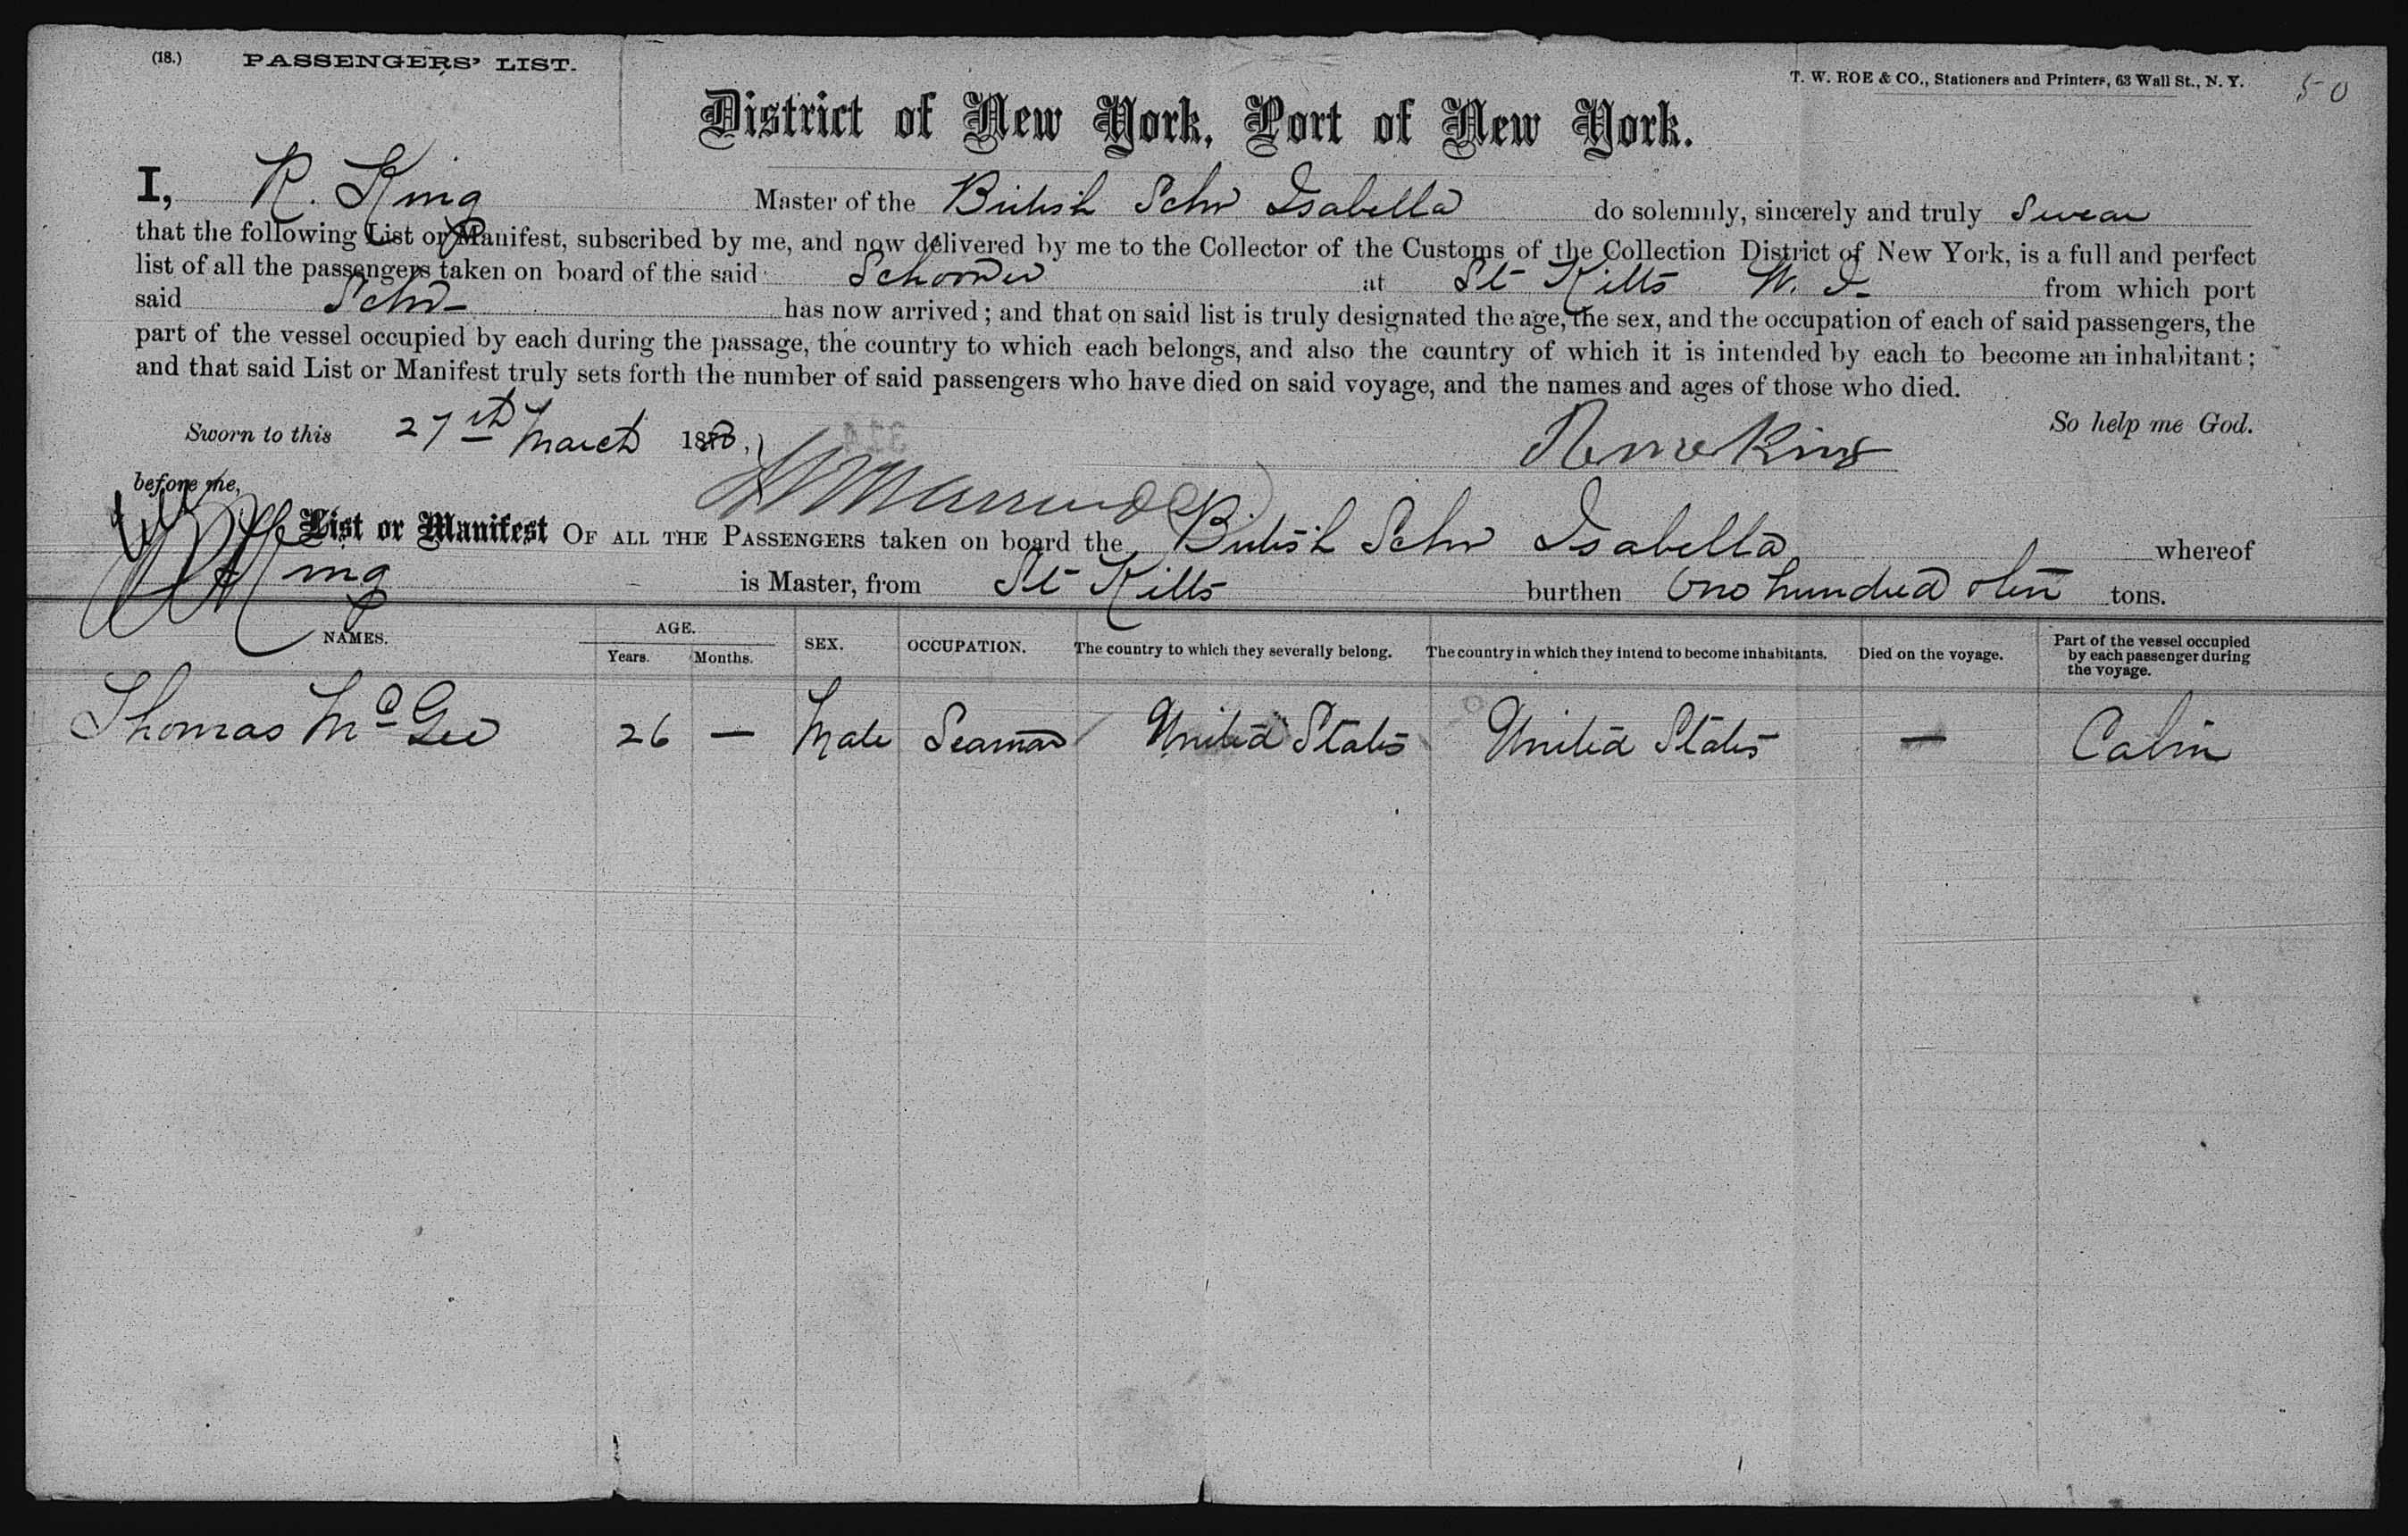 (18.) PASSENGERS' LIST.
T. W. ROE & CO., Stationers and Printers, 63 Wall St., N. Y. 50
District of New York, Port of New York.
I, R. King Master of the British Schr Isabella do solemnly, sincerely and truly swear
that the following List or Manifest, subscribed by me, and now delivered by me to the Collector of the Customs of the Collection District of New York, is a full and perfect
list of all the passengers taken on board of the said Schooner at St Kitts W. I. from which port
said Schr has now arrived; and that on said list is truly designated the age, the sex, and the occupation of each of said passengers, the
part of the vessel occupied by each during the passage, the country to which each belongs, and also the country of which it is intended by each to become an inhabitant;
and that said List or Manifest truly sets forth the number of said passengers who have died on said voyage, and the names and ages of those who died.
So help me God.
Sworn to this 27th March 188
King
before me,
List or Manifest OF ALL THE PASSENGERS taken on board the British Schr Isabella whereof
R King is Master, from St Kitts burthen One hundred & ten tons.
NAMES. AGE. Years. Months. SEX. OCCUPATION. The country to which they severally belong. The country in which they intend to become inhabitants. Died on the voyage. Part of the vessel occupied by each passenger during the voyage.
Thomas McGee 26 — Male Seaman United States United States — Cabin